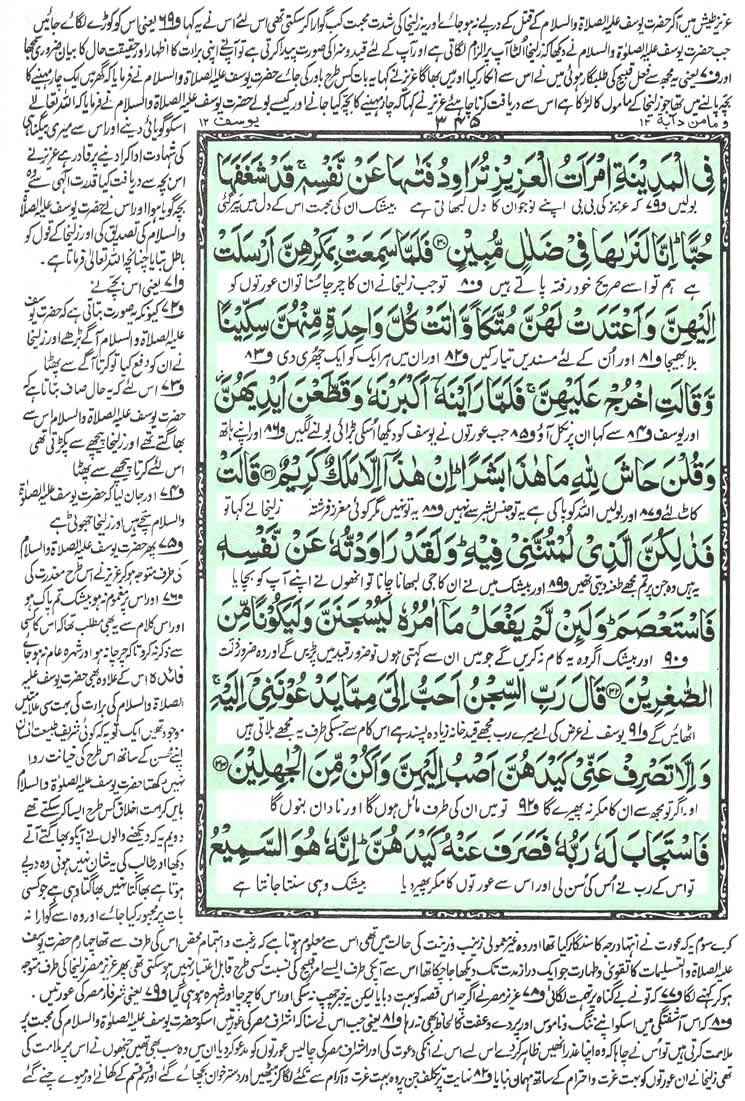 عزیز طیش میں آ کر حضرت یوسف علیہ الصلاۃ والسلام کے قتل کے درپے نہ ہو جائے اور یہ زلیخا کی شدت محبت کب گوارا کر سکتی تھی اس لئے اس نے یہ کہا و۶۹ یعنی اس کو کوڑے لگائے جائیں
جب حضرت یوسف علیہ الصلوٰۃ والسلام نے دیکھا کہ زلیخا الٹا آپ پر الزام لگاتی ہے اور آپ کے لئے قید و سزا کی صورت پیدا کرتی ہے تو آپ نے اپنی برات کا اظہار اور حقیقت حال کا بیان ضروری سمجھا
اور و۷۰ یعنی یہ مجھ سے فعل قبیح کی طلبگار ہوئی میں نے اس سے انکار کیا اور میں بھاگا عزیز نے کہا یہ بات کس طرح باور کی جائے حضرت یوسف علیہ الصلاۃ والسلام نے فرمایا کہ گھر میں ایک چار مہینے کا
بچہ پالنے میں تھا جو زلیخا کے ماموں کا لڑکا ہے اس سے دریافت کرنا چاہئے عزیز نے کہا کہ چار مہینے کا بچہ کیا جانے اور کیسے بولے حضرت یوسف علیہ الصلاۃ والسلام نے فرمایا کہ اللہ تعالیٰ
وما من دابۃ ۱۲
۳۴۵
یوسف ۱۲
فِي الْمَدِينَةِ امْرَأَتُ الْعَزِيزِ تُرَاوِدُ فَتٰىهَا عَنْ نَفْسِهٖ ۚ قَدْ شَغَفَهَا
بولیں و۷۹ کہ عزیز کی بی بی اپنے نوجوان کا دل لبھاتی ہے بیشک ان کی محبت اس کے دل میں پیر گئی
حُبًّا ؕ اِنَّا لَنَرٰىهَا فِي ضَلٰلٍ مُّبِينٍ ﴿۳۰﴾ فَلَمَّا سَمِعَتْ بِمَكْرِهِنَّ اَرْسَلَتْ
ہے ہم تو اسے صریح خود رفتہ پاتے ہیں و۸۰ تو جب زلیخا نے ان کا چرچا سنا تو ان عورتوں کو
اِلَيْهِنَّ وَاَعْتَدَتْ لَهُنَّ مُتَّكَاً وَّاٰتَتْ كُلَّ وَاحِدَةٍ مِّنْهُنَّ سِكِّينًا
بلا بھیجا و۸۱ اور اُن کے لئے مسندیں تیار کیں و۸۲ اور ان میں ہر ایک کو ایک چھری دی و۸۳
وَّقَالَتِ اخْرُجْ عَلَيْهِنَّ ۚ فَلَمَّا رَاَيْنَهٗٓ اَكْبَرْنَهٗ وَقَطَّعْنَ اَيْدِيَهُنَّ
اور یوسف و۸۴ سے کہا ان پر نکل آؤ و۸۵ جب عورتوں نے یوسف کو دیکھا اُسکی بڑائی بولنے لگیں و۸۶ اور اپنے ہاتھ
وَقُلْنَ حَاشَ لِلّٰهِ مَا هٰذَا بَشَرًا ؕ اِنْ هٰذَآ اِلَّا مَلَكٌ كَرِيمٌ ﴿۳۱﴾ قَالَتْ
کاٹ لئے و۸۷ اور بولیں اللہ کو پاکی ہے یہ تو جنس بشر سے نہیں و۸۸ یہ تو نہیں مگر کوئی معزز فرشتہ زلیخا نے کہا تو
فَذٰلِكُنَّ الَّذِي لُمْتُنَّنِي فِيهِ ؕ وَلَقَدْ رَاوَدْتُّهٗ عَنْ نَّفْسِهٖ
یہ ہیں وہ جن پر تم مجھے طعنہ دیتی تھیں و۸۹ اور بیشک میں نے ان کا جی لبھانا چاہا تو انھوں نے اپنے آپ کو بچایا
فَاسْتَعْصَمَ ؕ وَلَئِنْ لَّمْ يَفْعَلْ مَآ اٰمُرُهٗ لَيُسْجَنَنَّ وَلَيَكُونًا مِّنَ
و۹۰ اور بیشک اگر وہ یہ کام نہ کریں گے جو میں ان سے کہتی ہوں تو ضرور قید میں پڑیں گے اور وہ ضرور ذلت
الصّٰغِرِينَ ﴿۳۲﴾ قَالَ رَبِّ السِّجْنُ اَحَبُّ اِلَيَّ مِمَّا يَدْعُونَنِيٓ اِلَيْهِ ۚ
اٹھائیں گے و۹۱ یوسف نے عرض کی اے میرے رب مجھے قید خانہ زیادہ پسند ہے اس کام سے جسکی طرف یہ مجھے بلاتی ہیں
وَاِلَّا تَصْرِفْ عَنِّي كَيْدَهُنَّ اَصْبُ اِلَيْهِنَّ وَاَكُنْ مِّنَ الْجٰهِلِينَ ﴿۳۳﴾
اور اگر تو مجھ سے ان کا مکر نہ پھیرے گا و۹۲ تو میں ان کی طرف مائل ہوں گا اور نادان بنوں گا
فَاسْتَجَابَ لَهٗ رَبُّهٗ فَصَرَفَ عَنْهُ كَيْدَهُنَّ ؕ اِنَّهٗ هُوَ السَّمِيعُ
تو اس کے رب نے اُس کی سن لی اور اس سے عورتوں کا مکر پھیر دیا بیشک وہی سنتا جانتا ہے
اسکو گویائی دینے اور اس سے میری بیگناہی
کی شہادت ادا کرا دینے پر قادر ہے عزیز نے
اس بچہ سے دریافت کیا قدرت الٰہی سے وہ
بچہ گویا ہوا اور اس نے حضرت یوسف علیہ الصلاۃ
والسلام کی تصدیق کی اور زلیخا کے قول کو
باطل بتایا چنانچہ اللہ تعالیٰ فرماتا ہے۔
و۷۱ یعنی اس بچے نے
و۷۲ کیونکہ یہ صورت بتاتی ہے کہ حضرت یوسف
علیہ الصلاۃ والسلام آگے بڑھے اور زلیخا
نے ان کو دفع کیا تو کرتا آگے سے پھٹا
و۷۳ اس لئے کہ یہ حال صاف بتاتا ہے کہ
حضرت یوسف علیہ الصلاۃ والسلام اس سے
بھاگتے تھے اور زلیخا پیچھے سے پکڑتی تھی
اس لئے کرتا پیچھے سے پھٹا
و۷۴ اور جان لیا کہ حضرت یوسف علیہ الصلاۃ
والسلام سچے ہیں اور زلیخا جھوٹی ہے
و۷۵ پھر حضرت یوسف علیہ الصلاۃ والسلام
کی طرف متوجہ ہو کر عزیز نے اس طرح معذرت کی
و۷۶ اور اس پر مغموم نہ ہو بیشک تم پاک ہو
اور اس کلام سے یہ بھی مطلب تھا کہ اس کا کسی
سے ذکر نہ کرو تاکہ چرچا نہ ہو اور شہرہ عام نہ ہو جائے
فائدہ اس کے علاوہ بھی حضرت یوسف علیہ
الصلاۃ والسلام کی برات کی بہت سی علامتیں
موجود تھیں ایک تو یہ کہ کوئی شریف طبیعت انسان
اپنے محسن کے ساتھ اس طرح کی خیانت روا
نہیں رکھتا حضرت یوسف علیہ الصلوٰۃ والسلام
بایں کرامت اخلاق کس طرح ایسا کر سکتے تھے
دوم یہ کہ دیکھنے والوں نے آپ کو بھاگتے آتے
دیکھا اور طالب کی یہ شان نہیں ہوتی وہ درپے
ہوتا ہے بھاگتا نہیں بھاگتا وہی ہے جو کسی
بات پر مجبور کیا جائے اور وہ اسے گوارا نہ
کرے سوم یہ کہ عورت نے انتہا درجہ کا سنگار کیا تھا اور وہ غیر معمولی زیب و زینت کی حالت میں تھی اس سے معلوم ہوتا ہے کہ رغبت و اہتمام محض اس کی طرف سے تھا چہارم حضرت یوسف
علیہ الصلاۃ والتسلیمات کا تقویٰ و طہارت جو ایک دراز مدت تک دیکھا جا چکا تھا اس سے آپ کی طرف ایسے امر قبیح کی نسبت کسی طرح قابل اعتبار نہیں ہو سکتی تھی پھر عزیز مصر زلیخا کی طرف متوجہ
ہو کر کہنے لگا و۷۷ کہ تو نے بے گناہ پر تہمت لگائی و۷۸ عزیز مصر نے اگرچہ اس قصہ کو بہت دبایا لیکن یہ خبر چھپ نہ سکی اور اس کا چرچا اور شہرہ ہو ہی گیا و۷۹ یعنی شرفاء مصر کی عورتیں۔
و۸۰ کہ اس آشفتگی میں اسکو اپنے ننگ و ناموس اور پردے و عفت کا لحاظ بھی نہ رہا و۸۱ یعنی جب اس نے سنا کہ اشراف مصر کی عورتیں اسکو حضرت یوسف علیہ الصلوٰۃ والسلام کی محبت پر
ملامت کرتی ہیں تو اُس نے چاہا کہ وہ اپنا عذر انھیں ظاہر کر دے اس لیے اس نے انکی دعوت کی اور اشراف مصر کی چالیس عورتوں کو مدعو کر دیا ان میں وہ سب بھی تھیں جنھوں نے اس پر ملامت کی
تھی زلیخا نے ان عورتوں کو بہت عزت و احترام کے ساتھ مہمان بنایا و۸۲ نہایت پرتکلف جن پر وہ بہت عزت و آرام سے تکئے لگا کر بیٹھیں اور دسترخوان بچھائے گئے اور قسم قسم کے کھانے اور میوے چنے گئے